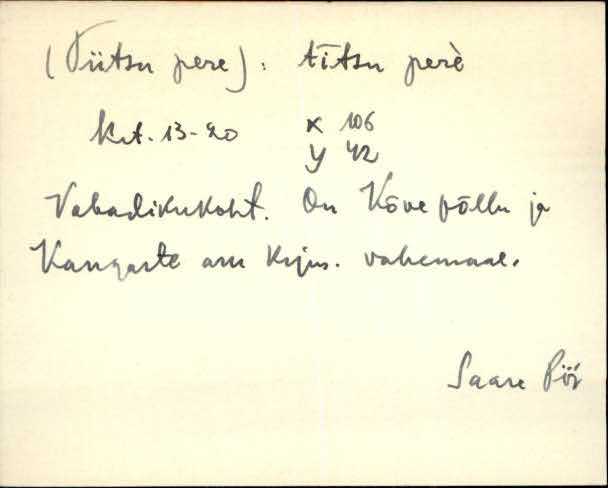 (Tiitsu pere): tītsu perè
Krt. 13-20 x 106
y 42
Vabadikukoht. On Kõvepõllu ja
Kangaste asu krjus. vahemaal.
Saare Pöi